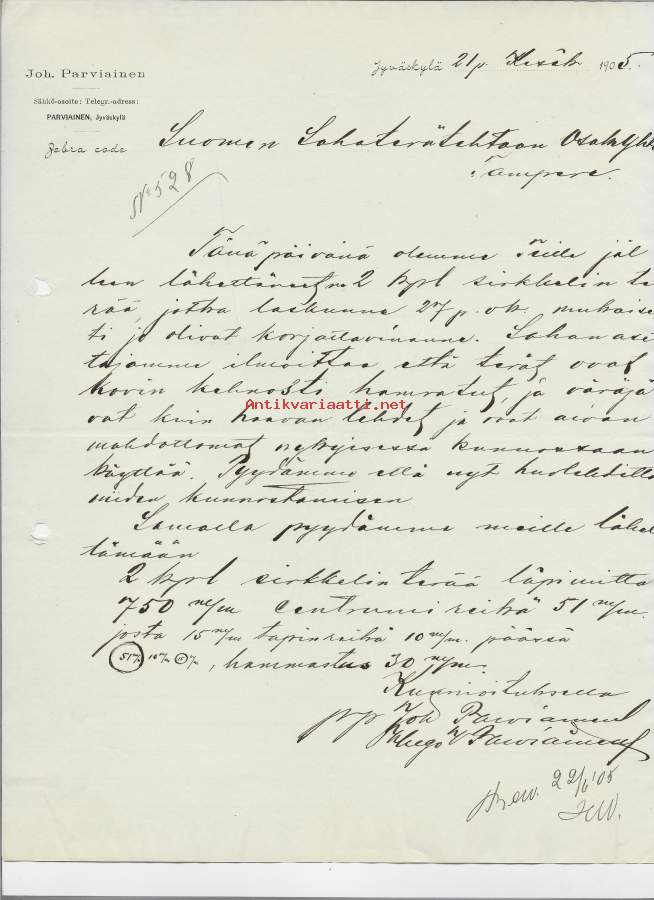 Joh. Parviainen
Sähkö-osoite: Telegr.-adress:
PARVIAINEN, Jyväskylä
Zebra code
Jyväskylä 21 p. Kesäk 1905.
Suomen Sahaterätehtaan Osakyhti
Tampere.
No 528
Tänäpäivänä olemme Teille jäl
leen lähettäneet 2 kpl sirkkelin te
rää, jotka laskunne 27 p. ok. mukaise
ti jo olivat korjattavinanne. Sahanase
tajamme ilmoittaa että terät ovat
kovin kehnosti hamratut, ja väräjä
vät kuin haavan lehdet ja ovat aivan
mahdottomat nykyisessä kunnossaan
käyttää. Pyydämme että nyt huolehditte
niiden kunnostamisen
Samalla pyydämme meille lähet
tämään
2 kpl sirkkelin terää läpimitta
750 m/m centrumireikä 51 m/m.
josta 15 m/m tapinreikä 10 m/m. päässä
51 10 , hammastus 30 m/m.
Kunnioituksella
pp Joh Parviainen
Hugo Parviainen
22/6 '05
Antikvariaatti.net